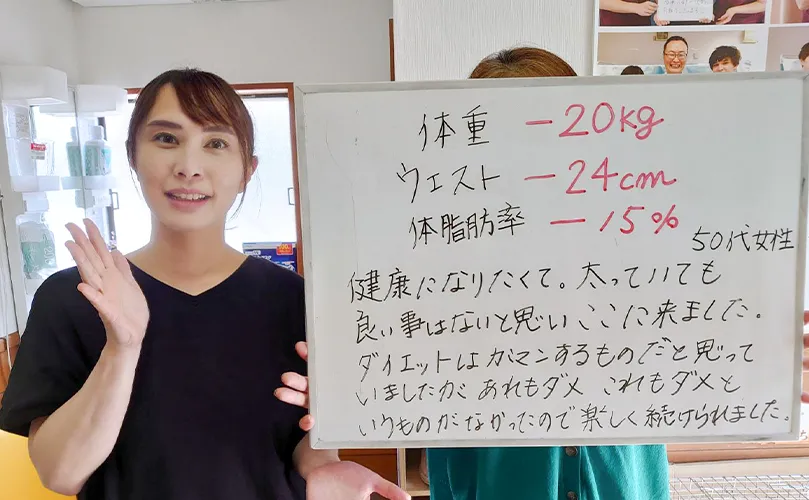 体重 -20kg
ウエスト -24cm
体脂肪率 -15%
50代女性
健康になりたくて。太っていても
良い事はないと思い ここに来ました。
ダイエットはガマンするものだと思って
いましたが あれもダメ これもダメと
いうものがなかったので楽しく続けられました。